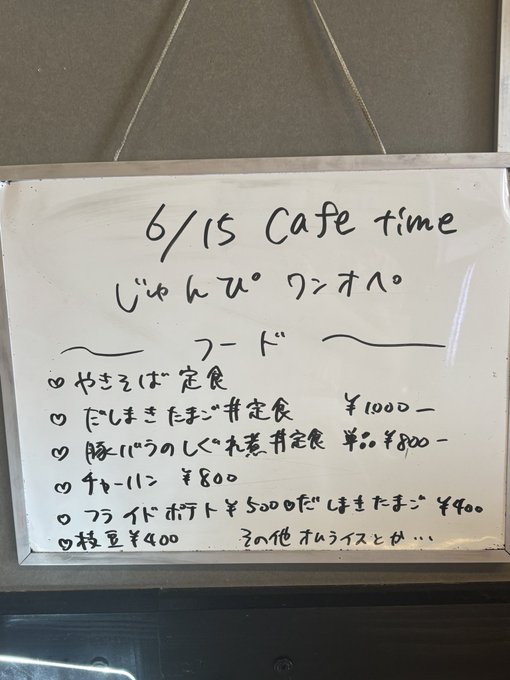 6/15 Cafe time
じゃんぴ ワンオペ
フード
♡ やきそば 定食
♡ だしまきたまご丼定食 ¥1000ー
♡ 豚バラのしぐれ煮丼定食 単品¥800ー
♡ チャーハン ¥800
♡ フライドポテト¥500♡だしまきたまご ¥400
♡枝豆¥400 その他 オムライスとか…